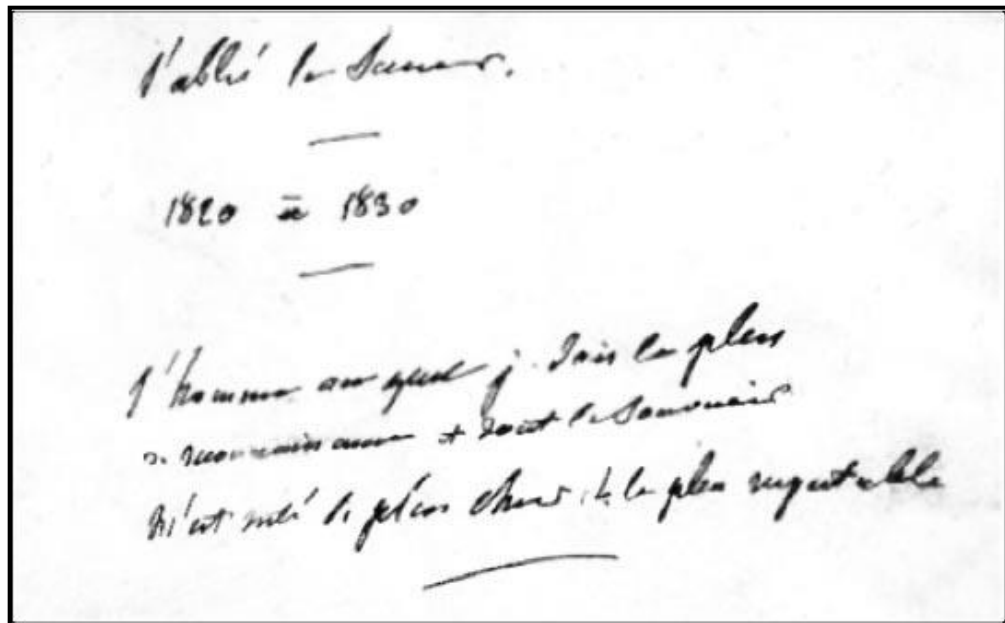 l'abbé le Sueur.
1820 à 1830
l'homme auquel je dois le plus
de reconnaissance et dont le souvenir
m'est resté le plus cher, & le plus respectable